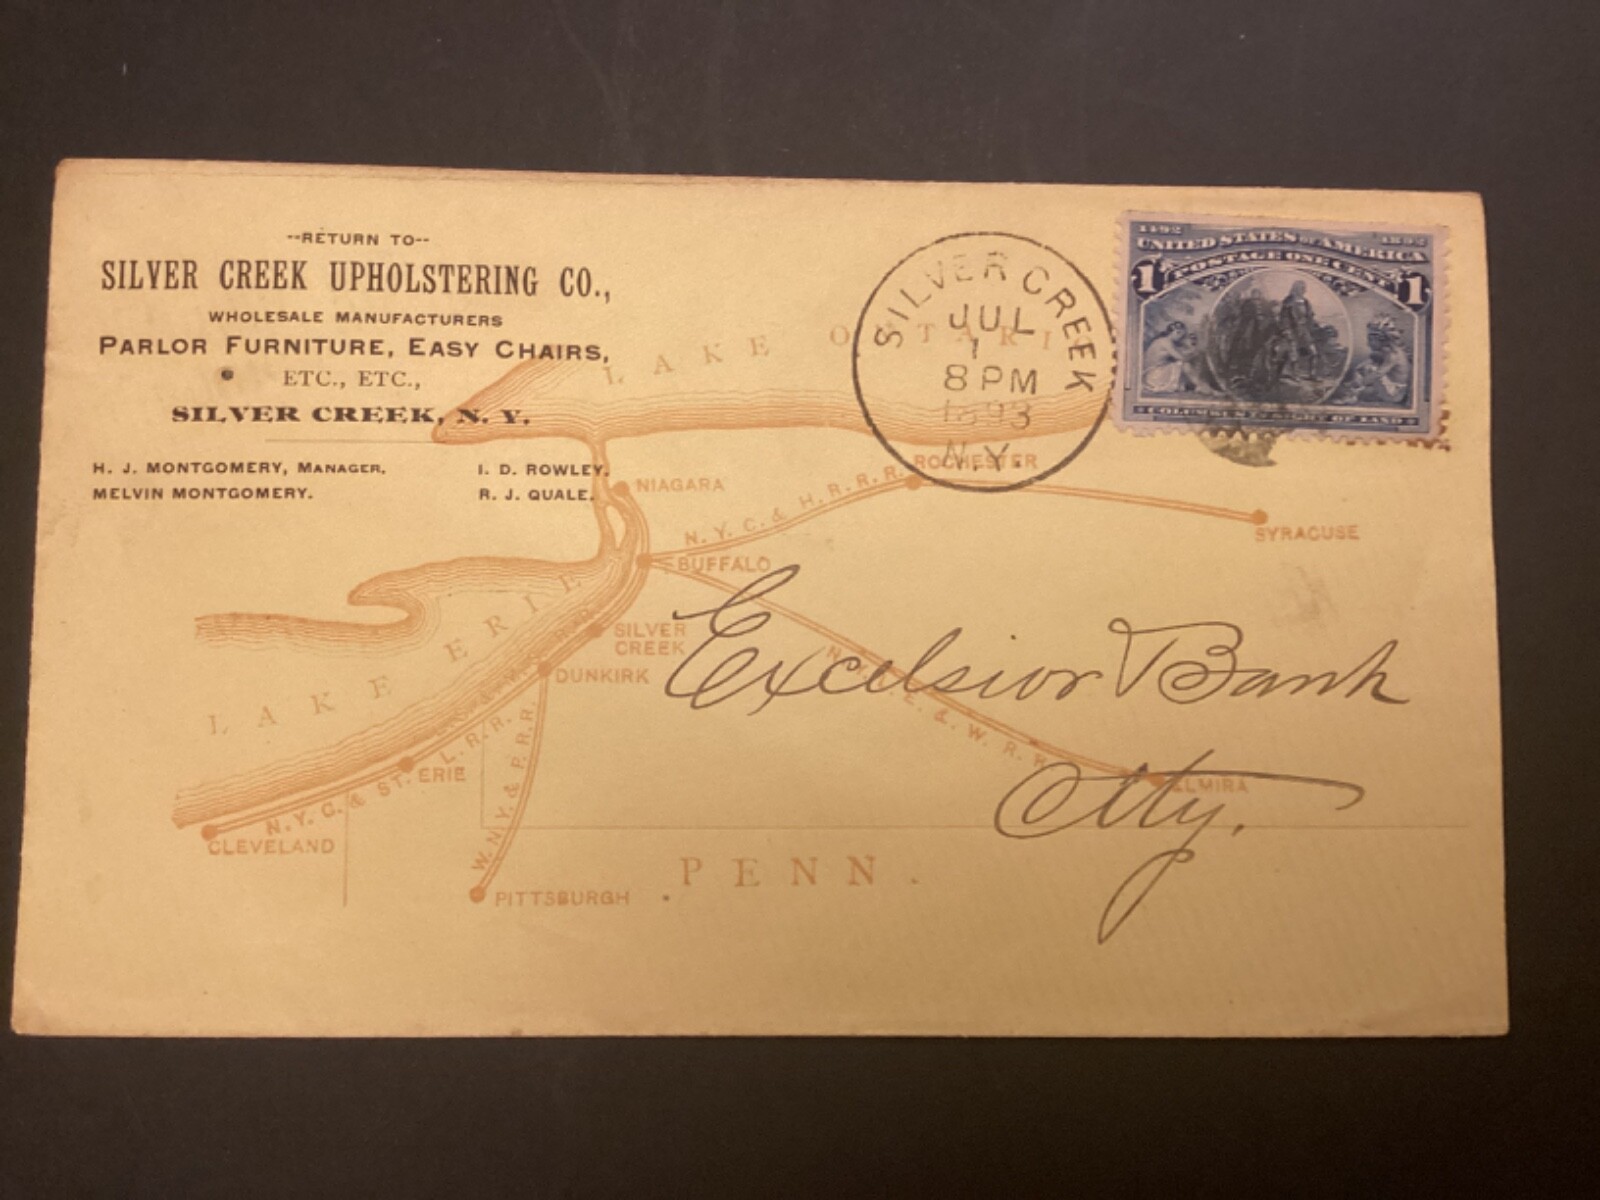 --RETURN TO--
SILVER CREEK UPHOLSTERING CO.,
WHOLESALE MANUFACTURERS
PARLOR FURNITURE, EASY CHAIRS,
ETC., ETC.,
SILVER CREEK, N. Y.
H. J. MONTGOMERY, MANAGER.
I. D. ROWLEY.
MELVIN MONTGOMERY.
R. J. QUALE.
SILVER CREEK
JUL
1
8 PM
1893
N.Y.
1492
1892
UNITED STATES OF AMERICA
POSTAGE ONE CENT
1
1
COLUMBUS IN SIGHT OF LAND
LAKE ONTARIO
NIAGARA
ROCHESTER
N. Y. C. & H. R. R. R.
SYRACUSE
BUFFALO
LAKE ERIE
SILVER
CREEK
DUNKIRK
Excelsior Bank
City.
E. & W. R. R.
ELMIRA
ERIE
N. Y. C. & ST. L. R. R.
W. N. Y. & P. R. R.
CLEVELAND
PITTSBURGH
PENN.